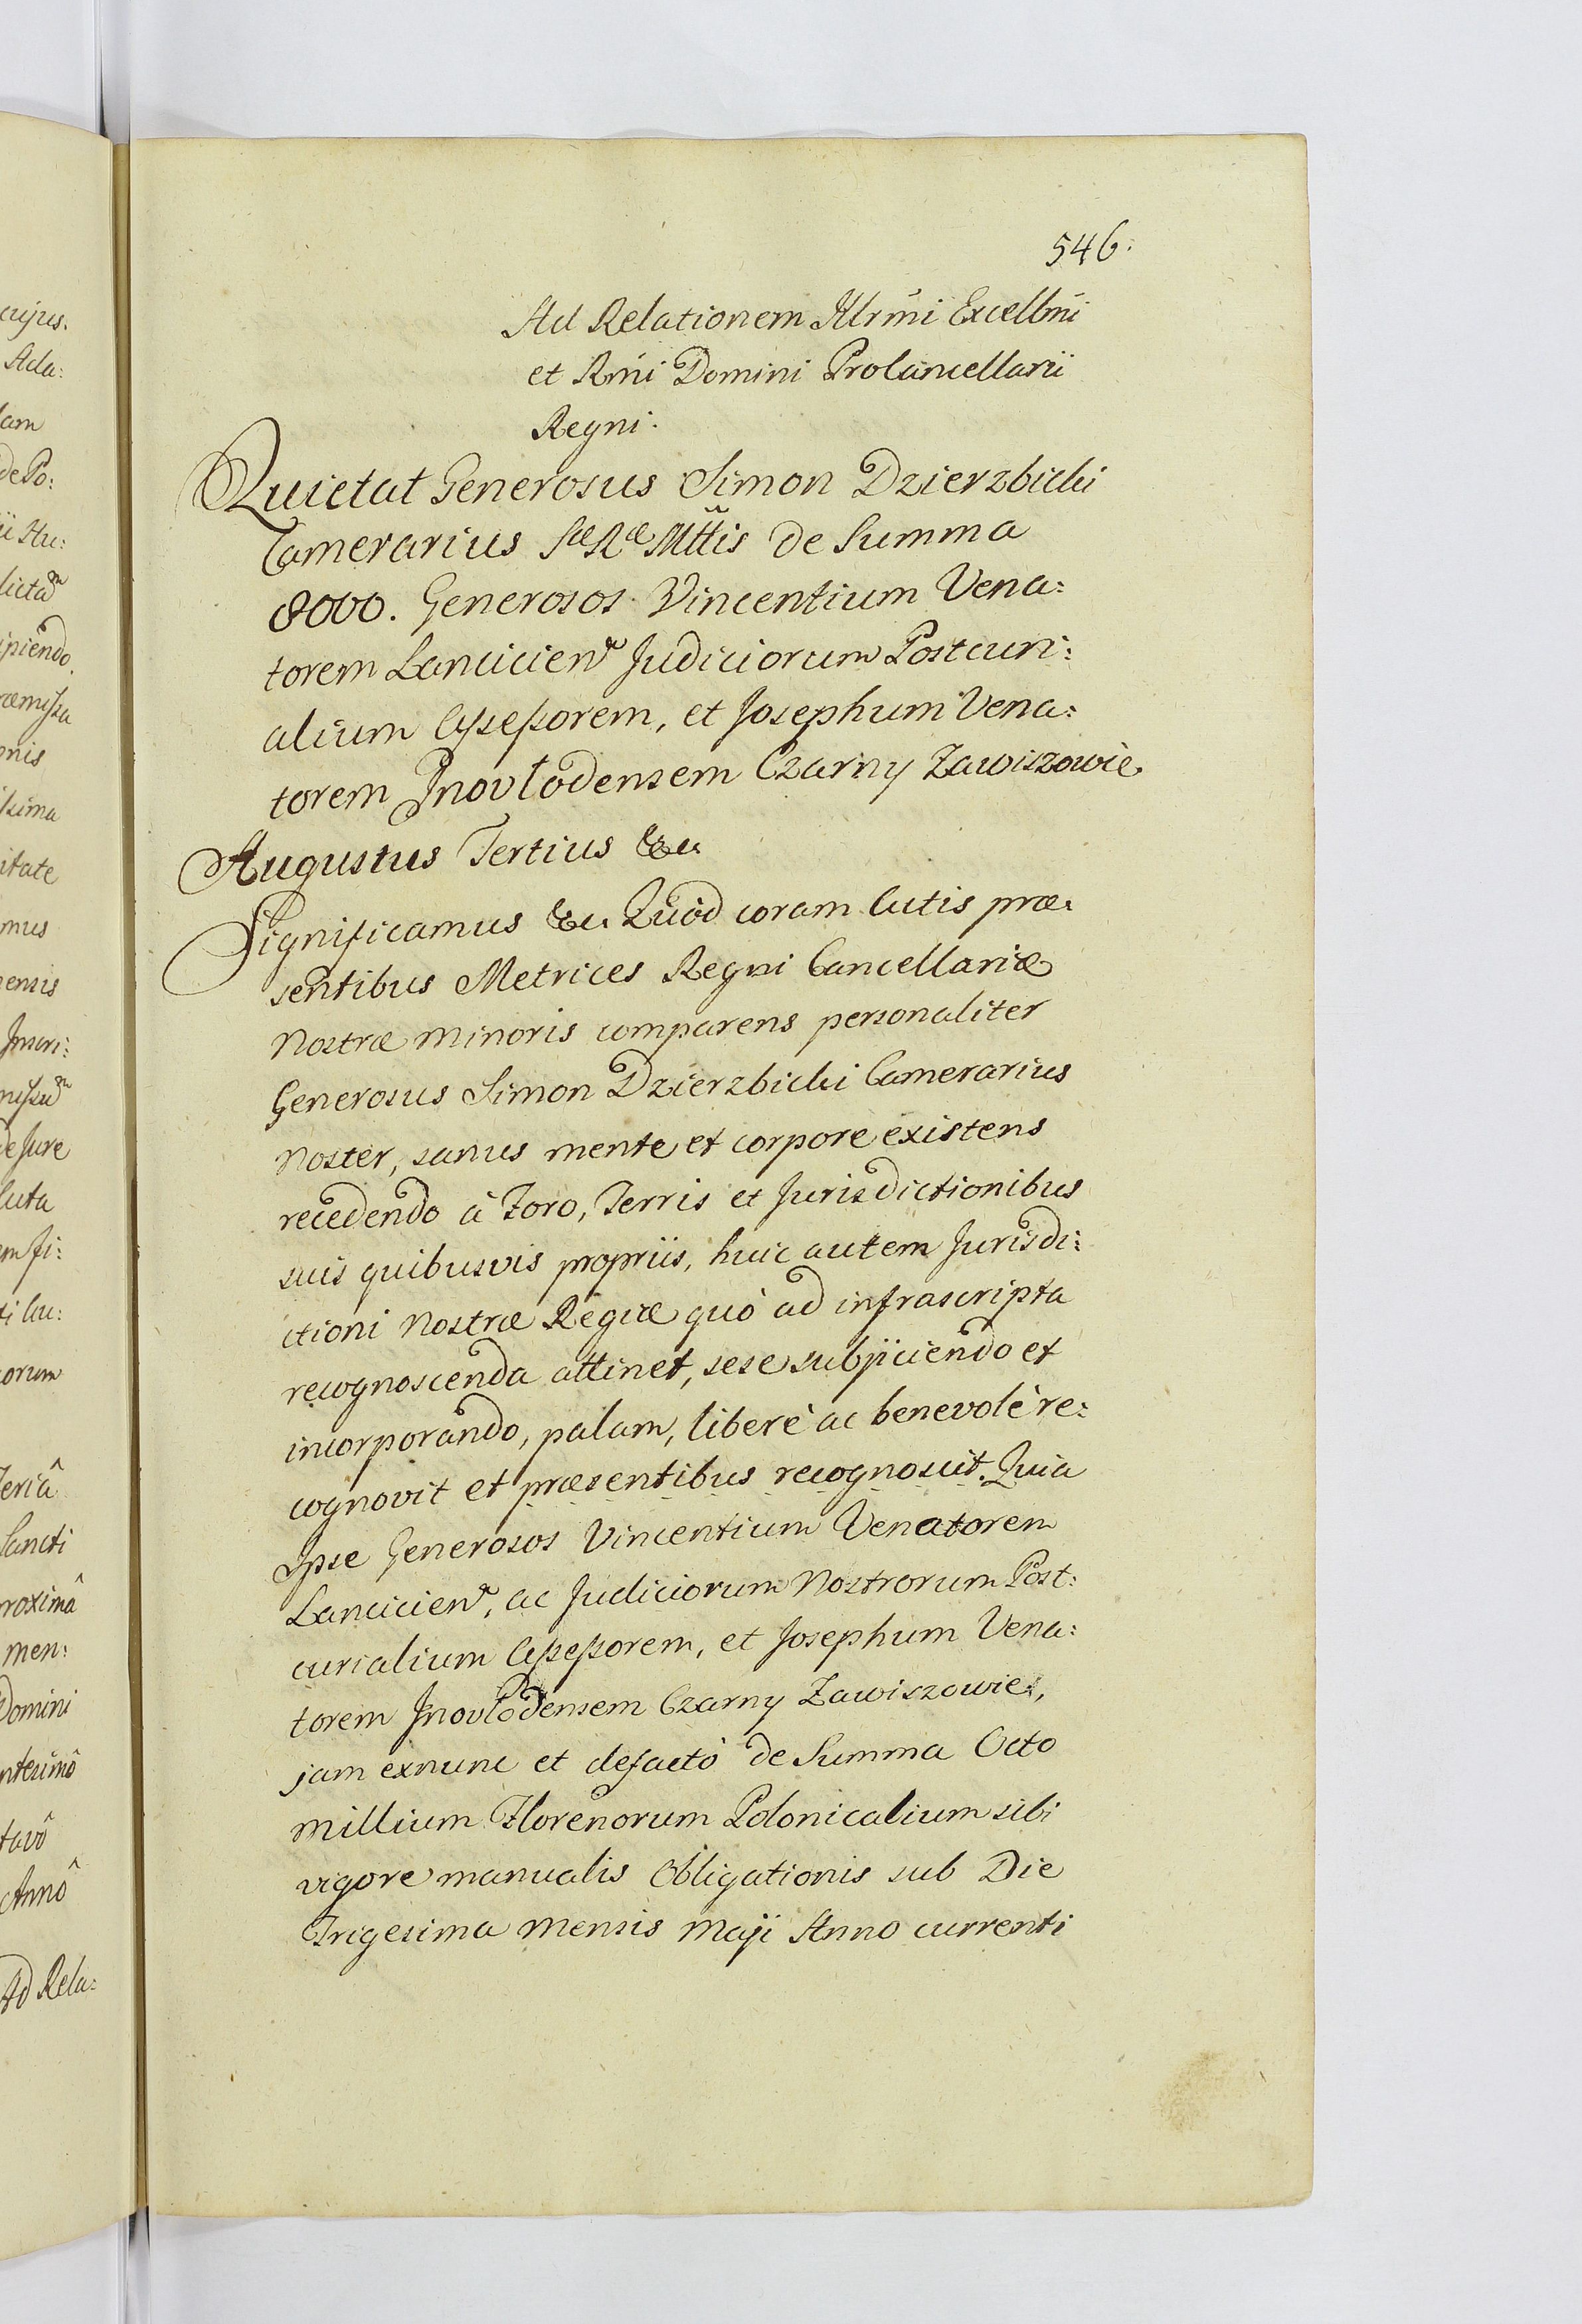 546.
Ad Relationem Illrm̄i Excellm̄i
et Rm̄i Domini Procancellarii
Regni.
Quietat Generosus Simon Dzierzbicki
Camerarius Sæ Ræ Mttis de Summa
8000. Generosos Vincentium Vena:
torem Lanciciens Judiciorum Postcuri:
alium Assessorem, et Josephum Vena:
torem Inovlodensem Czarny Zawiszowie
Augustus Tertius &c.
Significamus &c. Quòd coram Actis præ:
sentibus Metrices Regni Cancellariæ
Nostræ Minoris comparens personaliter
Generosus Simon Dzierzbicki Camerarius
Noster, sanus mente et corpore existens
recedendo à Foro, Terris et Jurisdictionibus
suis quibusvis propriis, huic autem Jurisdi:
ctioni Nostræ Regiæ quò ad infrascripta
recognoscenda attinet, sese subjiciendo et
incorporando, palam, liberè ac benevolè re:
cognovit et præsentibus recognoscit. Quia
Ipse Generosos Vincentium Venatorem
Lanciciens, ac Judiciorum Nostrorum Post:
curialium Assessorem, et Josephum Vena:
torem Inovlodensem Czarny Zawiszowie,
jam exnunc et defactò de Summa Octo
Millium Florenorum Polonicalium sibi
vigore manualis Obligationis sub Die
Trigesima Mensis Maji Anno currenti